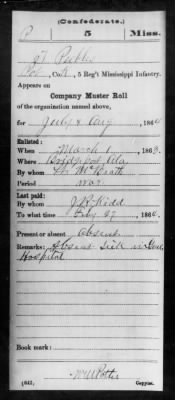 (Confederate.)
P 5 Miss.
Co. , 5 Reg't Mississippi Infantry.
Appears on
Company Muster Roll
of the organization named above,
for July & Aug , 1864
Enlisted:
When March 1 , 186
Where Bridgeport Ala
By whom
Period war
Last paid:
By whom J. R. Kidd
To what time Feby , 1864.
Present or absent Absent
Remarks: Absent Sick in Genl
Hospital
Book mark:
(642)
Copyist.